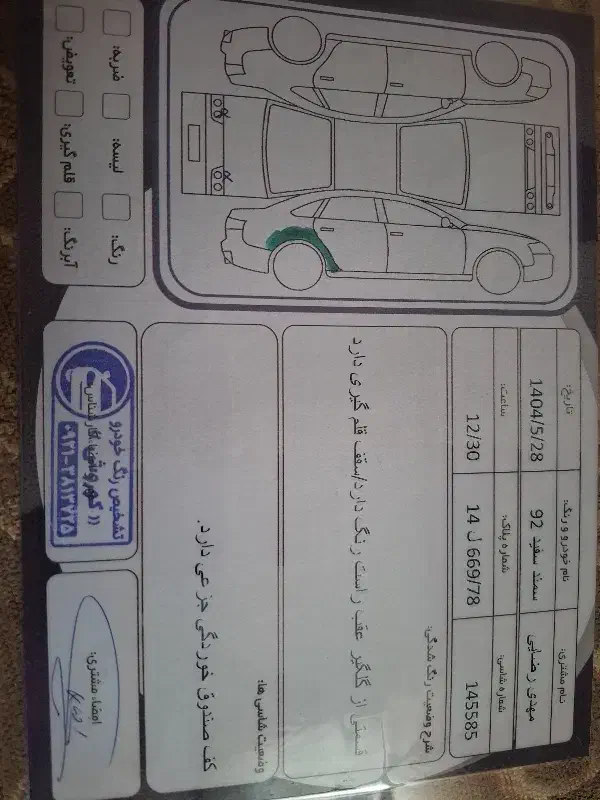 نام مشتری:
مهدی رضایی
نام خودرو و رنگ:
سمند سفید 92
تاریخ:
1404/5/28
شماره شاسی:
145585
شماره پلاک:
14 ل 669/78
ساعت:
12/30
شرح وضعیت رنگ شدگی:
قسمتی از گلگیر عقب راست رنگ دارد/سقف قلم گیری دارد
وضعیت شاسی ها:
کف صندوق خوردگی جزعی دارد.
ضربه:
لیسه:
رنگ:
تعویض:
قلم گیری:
آبرنگ:
تشخیص رنگ خودرو
امضاء مشتری: